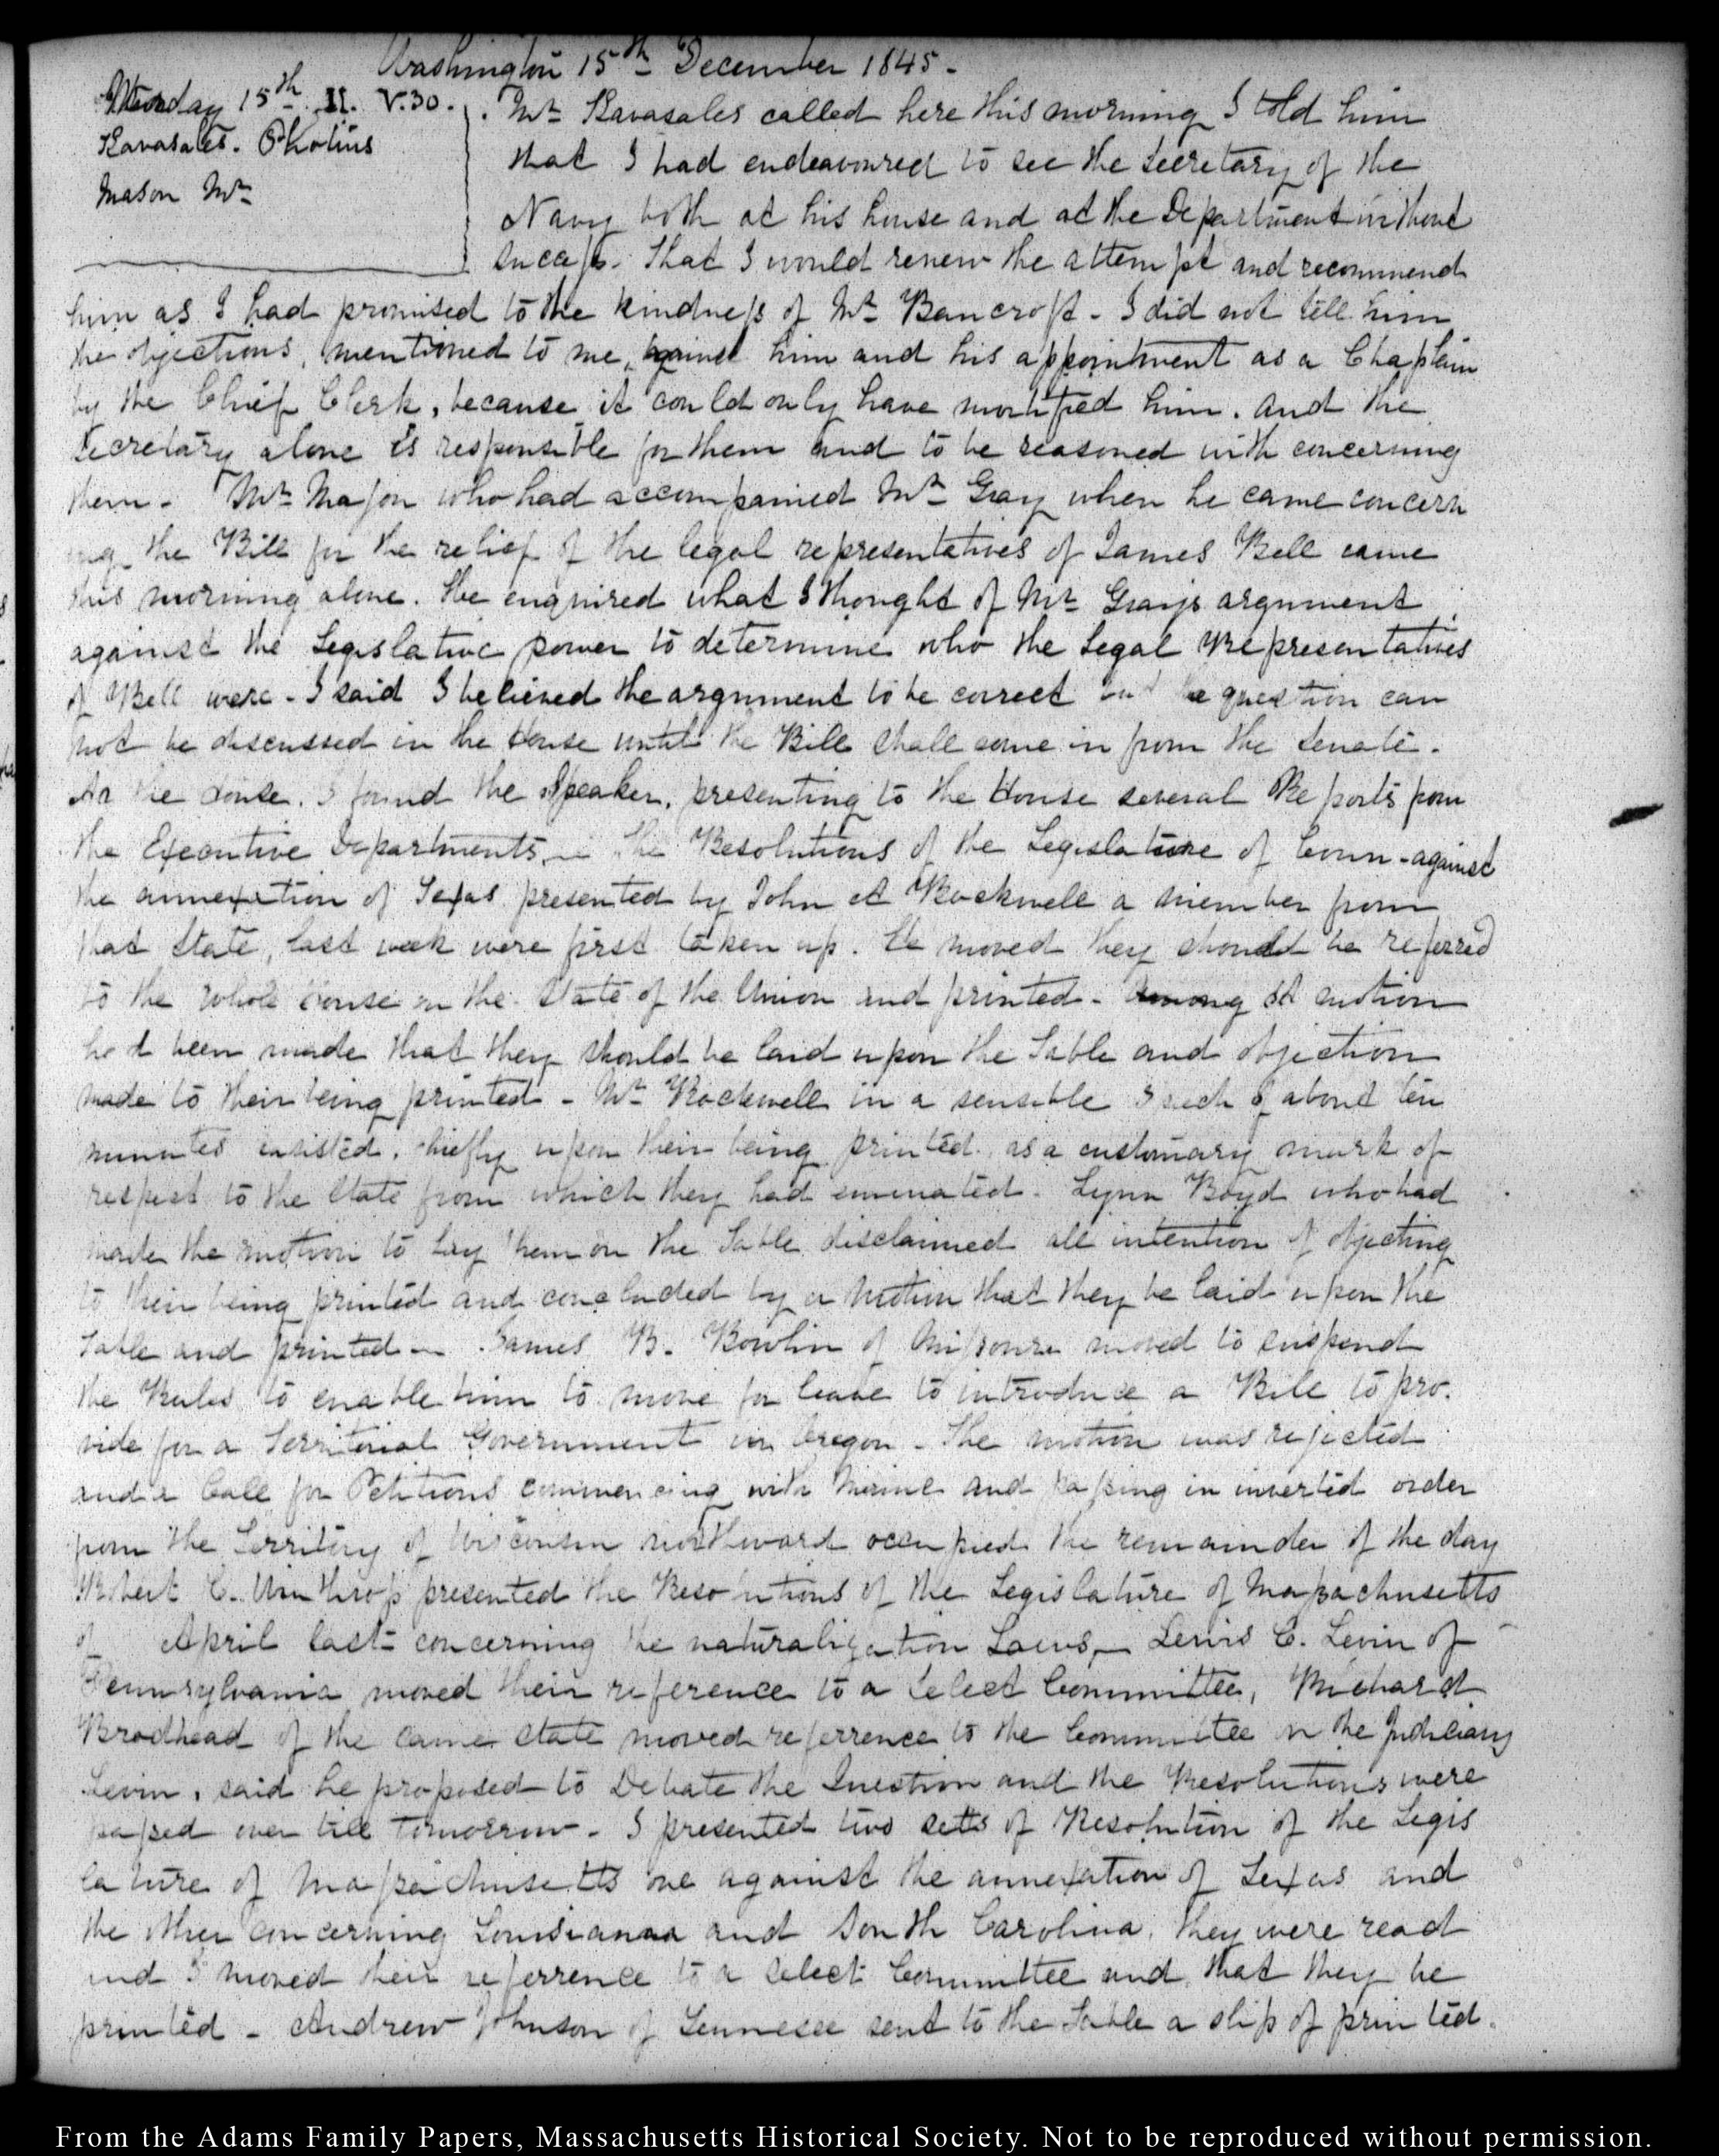 Washington 15th December 1845.
Monday 15th. II. V.30.
Kavasales. Photius
Mason Mr
Mr Kavasales called here this morning I told him
that I had endeavoured to see the Secretary of the
Navy both at his house and at the Department without
success. That I would renew the attempt and recommend
him as I had promised to the kindness of Mr Bancroft - I did not tell him
the objections, mentioned to me, against him and his appointment as a Chaplain
by the Chief Clerk, because it could only have mortified him. And the
Secretary alone is responsible for them and to be reasoned with concerning
them - Mr Mason who had accompanied Mr Gray when he came concern
ing the Bill for the relief of the legal representatives of James Bell came
this morning alone. He enquired what I thought of Mr Grays argument
against the Legislative power to determine who the Legal Representatives
of Bell were - I said I believed the argument to be correct but the question can
not be discussed in the House until the Bill shall come in from the Senate.
At the House. I found the Speaker, presenting to the House several Reports from
the Executive Departments the Resolutions of the Legislature of Conn - against
the annexation of Texas presented by John A Rockwell a member from
that State, last week were first taken up. He moved they should be referred
to the whole House on the State of the Union and printed - motion
had been made that they should be laid upon the Table and objection
made to their being printed - Mr Rockwell in a sensible speech of about ten
minutes insisted, chiefly upon their being printed. as a customary mark of
respect to the State from which they had emenated. Lynn Boyd who had
made the motion to lay them on the Table disclaimed all intention of objecting
to their being printed and concluded by a motion that they be laid upon the
Table and printed - James B. Bowlin of Missouri moved to suspend
the Rules to enable him to move for leave to introduce a Bill to pro.
vide for a Territorial Government in Oregon - The motion was rejected
and a Call for Petitions commencing with Maine and passing in inverted order
from the Territory of Wisconsin northward occupied the remainder of the day
Robert C. Winthrop presented the Resolutions of the Legislature of Massachusetts
of April last - concerning the naturalization Laws - Lewis C. Levin of
Pennsylvania moved their reference to a Select Committee, Richard
Brodhead of the same State moved referrence to the Committee on the Judiciary
Levin, said he proposed to Debate the Question and the Resolutions were
passed over till tomorrow - I presented two setts of Resolution of the Legis
lature of Massachusetts one against the annexation of Texas and
the other concerning Louisiana and South Carolina. they were read
and I moved their referrence to a Select Committee and that they be
printed - Andrew Johnson of Tennesee sent to the Table a slip of printed.
From the Adams Family Papers, Massachusetts Historical Society. Not to be reproduced without permission.